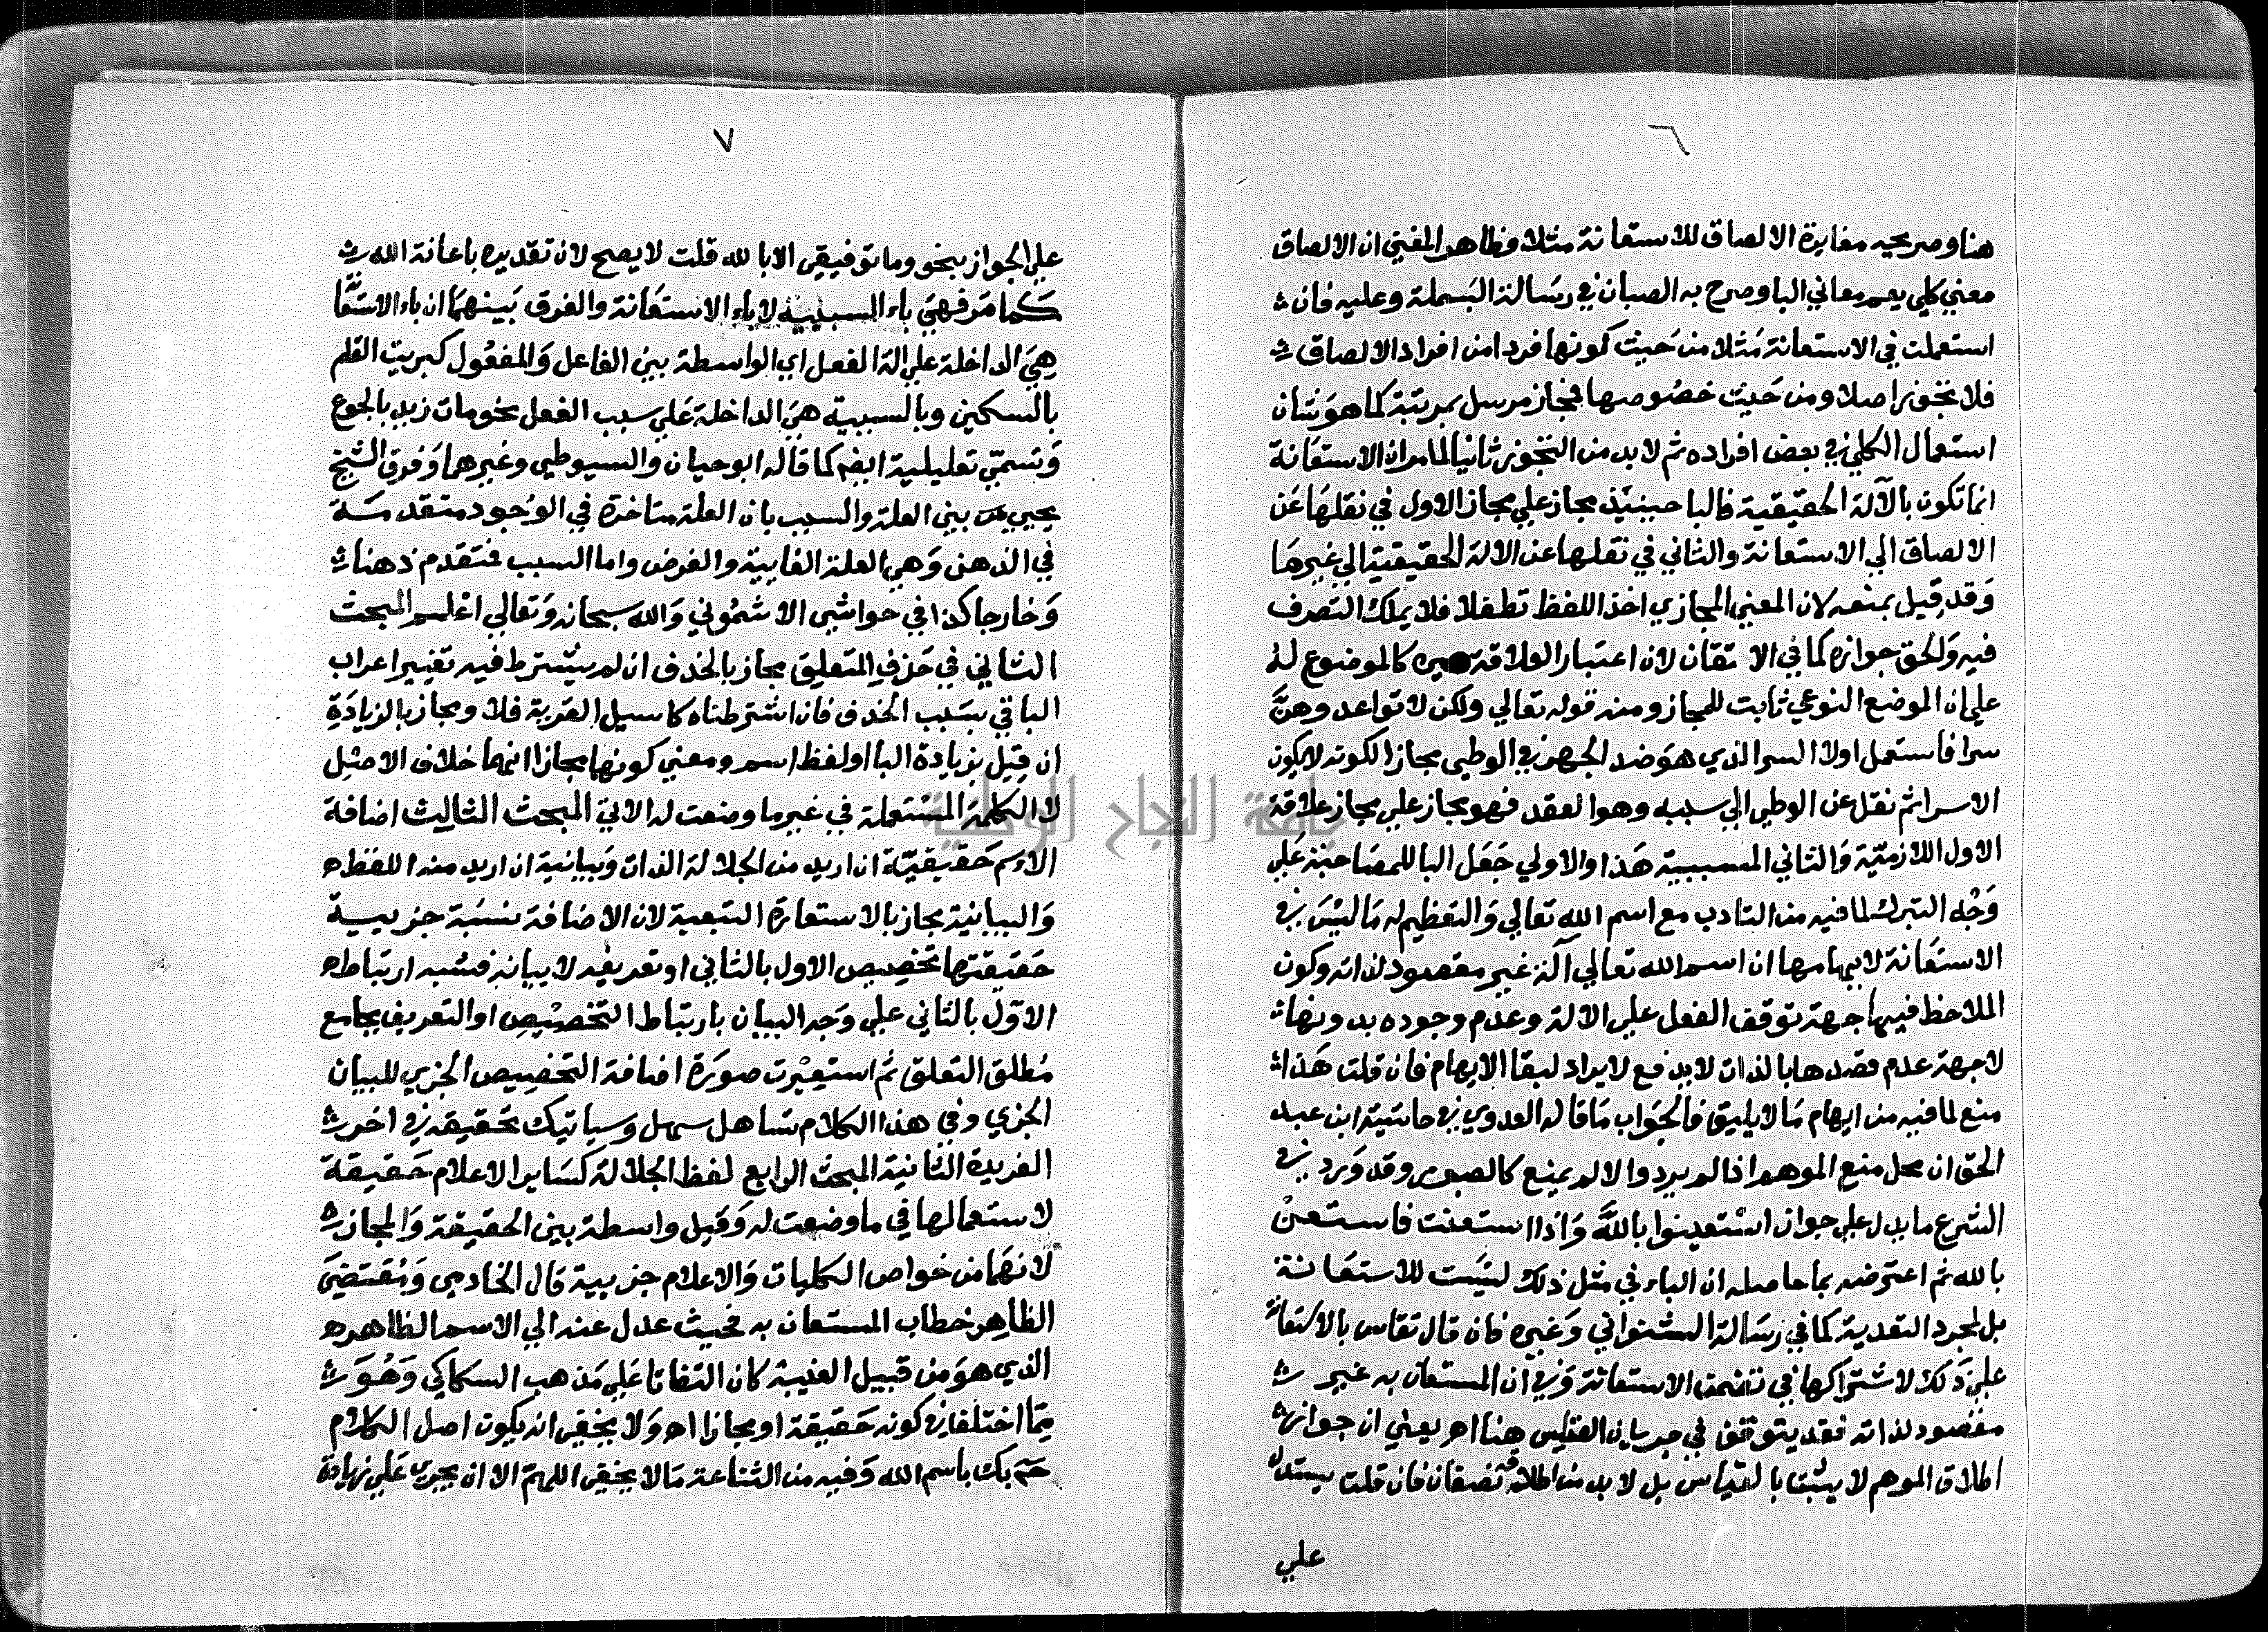 ٦
هنا وصريحه مغايرة الالصاق للاستعانة مثلا وظاهر المغني ان الالصاق
معني كلي يعم معاني البا وصرح به الصبان في رسالة البسملة وعليه فان
استعملت في الاستعانة مثلا من حيث كونها فردا من افراد الالصاق
فلا تجوز اصلا ومن حيث خصوصها فمجاز مرسل بمرتبة كما هو شان
استعمال الكلي في بعض افراده ثم لابد من التجوز ثانيا لما مر ان الاستعانة
انما تكون بالآلة الحقيقية فالبا حينيذ مجاز علي مجاز الاول في نقلها عن
الالصاق الي الاستعانة والثاني في نقلها عن الالة الحقيقية الي غيرها
وقد قيل بمنعه لان المعني المجازي اخذ اللفظ تطفلا فلا يملك التصرف
فيه والحق جوازه كما في الاتقان لان اعتبار العلاقة صيره كالموضوع له
علي ان الموضع النوعي ثابت للمجاز ومنه قوله تعالي ولكن لا تواعدوهن
سرا فاستعمل اولا السر الذي هو ضد الجهر في الوطي مجازا لكونه لايكون
الا سرا ثم نقل عن الوطي الي سببه وهو العقد فهو مجاز علي مجاز علاقة
الاول اللازمتية والثاني المسببية هذا والاولي جعل البا للمصاحبة علي
وجه التبرك لما فيه من التادب مع اسم الله تعالي والتعظيم له ما ليس في
الاستعانة لايهامها ان اسم الله تعالي آلة غير مقصود لذاته وكون
الملاحظ فيها جهة توقف الفعل علي الالة وعدم وجوده بدونها
لاجهة عدم قصدها بالذات لايدفع لايراد لبقا الايهام فان قلت هذا
منع لما فيه من ايهام ما لايليق فالجواب ما قاله العدوي في حاشية ابن عبد
الحق ان محل منع الموهم اذا لم يرد والا لم يمنع كالصبور وقد ورد في
الشرع ما يدل علي جواز استعينوا بالله واذا استعنت فاستعن
بالله ثم اعترضه بما حاصله ان الباء في مثل ذلك ليست للاستعانة
بل لمجرد التعدية كما في رسالة الشنواني وغيره فان قال تقاس باء الاستعانة
علي ذلك لاشتراكها في تضمن الاستعانة وفي ان المستعان به غير
مقصود لذاته فقد يتوقف في جريان القياس هنا اهـ يعني ان جواز
اطلاق الموهم لا يثبت بالقياس بل لا بد من اطلاقه نصا فان قلت يستدل
علي
٧
علي الجواز بنحو وما توفيقي الا بالله قلت لا يصح لان تقديره باعانة الله
كما مر فهي باء السببية لا باء الاستعانة والفرق بينهما ان باء الاستعا
هي الداخلة علي الة الفعل اي الواسطة بين الفاعل والمفعول كبريت القلم
بالسكين وبالسببية هي الداخلة علي سبب الفعل نحو مات زيد بالجوع
وتسمي تعليلية ايضا كما قاله ابو حيان والسيوطي وغيرهما وفرق الشيخ
يحيي بين العلة والسبب بان العلة متاخرة في الوجود متقدمة
في الذهن وهي العلة الغايية والغرض واما السبب فمتقدم ذهنا
وخارجا كذا في حواشي الاشموني والله سبحانه وتعالي اعلم المبحث
الثاني في حذف المتعلق مجاز بالحذف ان لم يشترط فيه تغيير اعراب
الباقي بسبب الحذف فان اشترطناه كاسيل القرية فلا ومجاز بالزيادة
ان قيل بزيادة البا او لفظ اسم ومعني كونها مجازا انها خلاف الاصل
لا الكلمة المستعملة في غير ما وضعت له الاتي المبحث الثالث اضافة
الاسم حقيقية ان اريد من الجلالة الذات وبيانية ان اريد منه اللفظ
والبيانية مجاز بالاستعارة التبعية لان الاضافة نسبة جزيية
حقيقتها تخصيص الاول بالثاني او تعريفه لا بيانه فشبه ارتباط
الاول بالثاني علي وجه البيان بارتباط التخصيص او التعريف بجامع
مطلق التعلق ثم استعيرت صورة اضافة التخصيص الجزي للبيان
الجزي وفي هذا الكلام تساهل سهل وسياتيك تحقيقه في اخر
الفريدة الثانية المبحث الرابع لفظ الجلالة كساير الاعلام حقيقة
لاستعمالها في ما وضعت له وقيل واسطة بين الحقيقة والمجاز
لانهما من خواص الكليات والاعلام جزيية قال الخادمي ومقتضي
الظاهر خطاب المستعان به فحيث عدل عنه الي الاسم الظاهر
الذي هو من قبيل الغيبة كان التفاتا علي مذهب السكاكي وهو
مما اختلفا في كونه حقيقة او مجازا اهـ ولا يخفي انه يكون اصل الكلام
ح بك باسم الله وفيه من الشناعة ما لا يخفي اللهم الا ان يجري علي زيادة
جامعة النجاح الوطنية